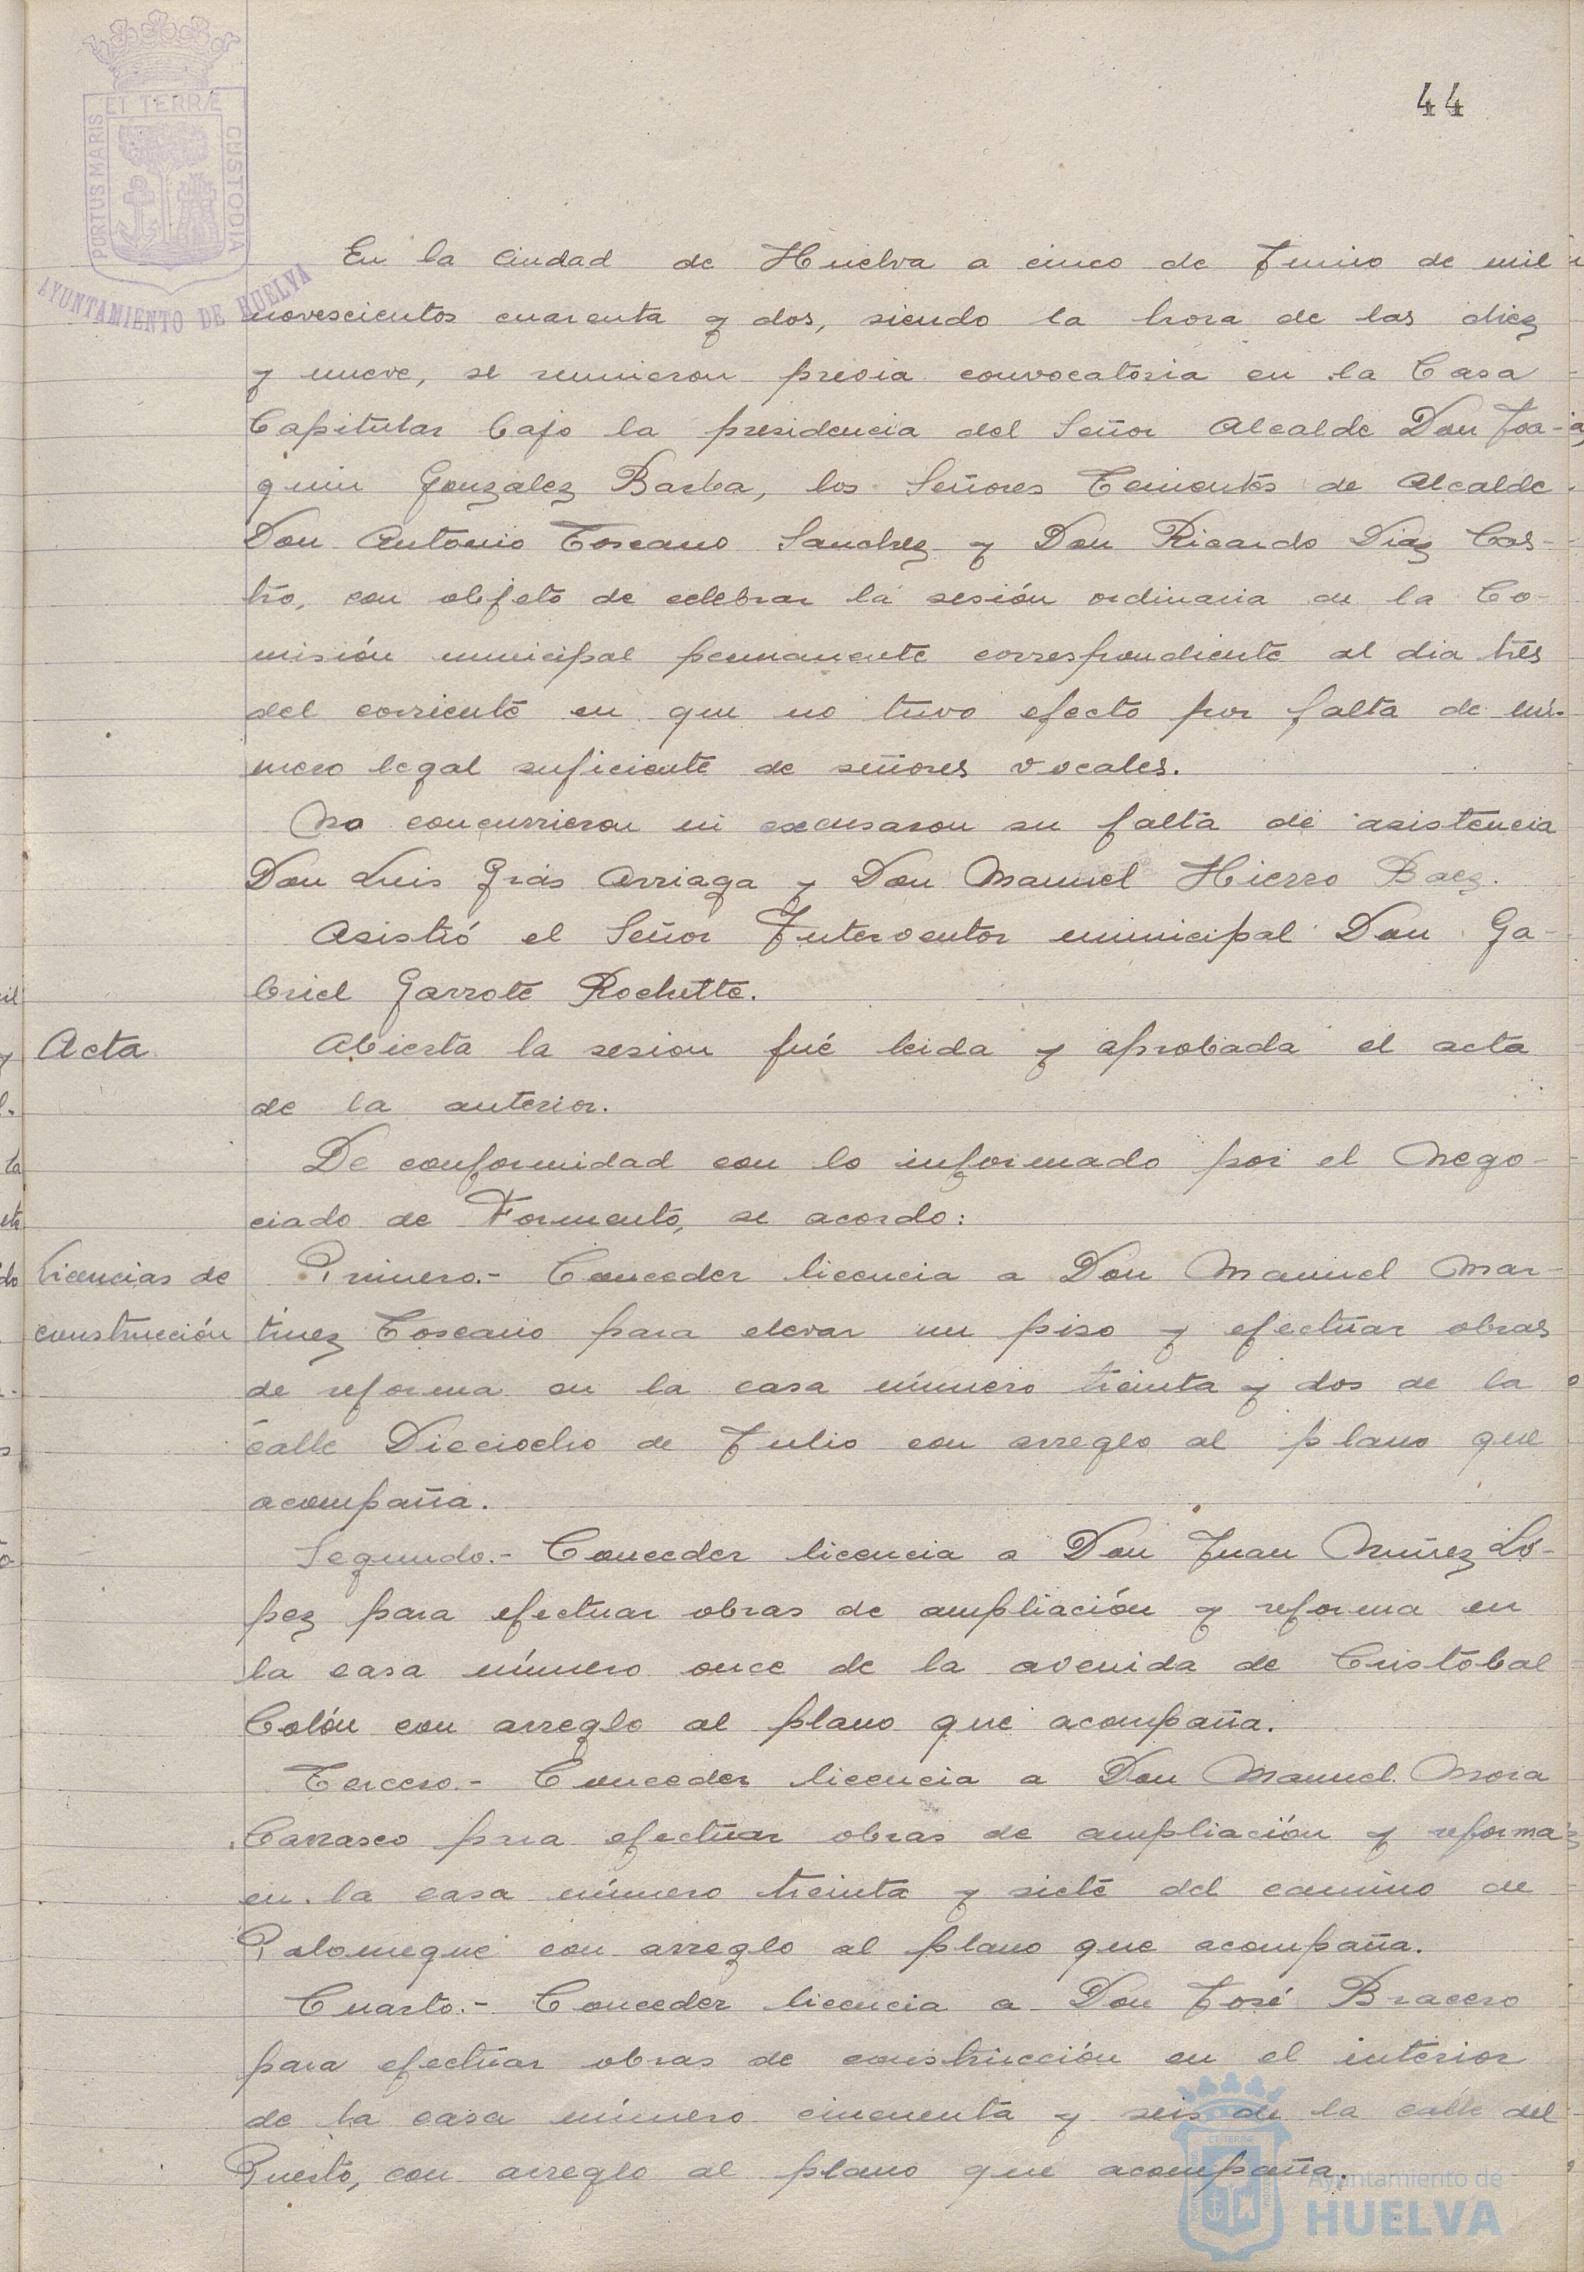 44
PORTUS MARIS ET TERRÆ CUSTODIA
AYUNTAMIENTO DE HUELVA
En la Ciudad de Huelva a cinco de Junio de mil
novescientos cuarenta y dos, siendo la hora de las diez
y nueve, se reunieron previa convocatoria en la Casa
Capitular bajo la presidencia del Señor Alcalde Don Joa-
quin Gonzalez Barba, los Señores Tenientes de Alcalde
Don Antonio Toscano Sanchez y Don Ricardo Diaz Cas-
tro, con objeto de celebrar la sesión ordinaria de la Co-
misión municipal permanente correspondiente al dia tres
del corriente en que no tuvo efecto por falta de nú-
mero legal suficiente de señores vocales.
No concurrieron ni excusaron su falta de asistencia
Don Luis Grás Arriaga y Don Manuel Hierro Baez.
Asistió el Señor Interventor municipal Don Ga-
briel Garrote Rochette.
Acta
Abierta la sesion fué leida y aprobada el acta
de la anterior.
De conformidad con lo informado por el Nego-
ciado de Formento, se acordo:
Licencias de
construcción
Primero.- Conceder licencia a Don Manuel Mar-
tinez Toscano para elevar un piso y efectuar obras
de reforma en la casa número treinta y dos de la
calle Dieciocho de Julio con arreglo al plano que
acompaña.
Segundo.- Conceder licencia a Don Juan Nuñez Ló-
pez para efectuar obras de ampliación y reforma en
la casa número once de la avenida de Cristóbal
Colón con arreglo al plano que acompaña.
Tercero.- Conceder licencia a Don Manuel Mora
Carrasco para efectuar obras de ampliación y reforma
en la casa número treinta y siete del camino de
Palomeque con arreglo al plano que acompaña.
Cuarto.- Conceder licencia a Don José Bracero
para efectuar obras de construcción en el interior
de la casa número cincuenta y seis de la calle del
Puerto, con arreglo al plano que acompaña.
Ayuntamiento de
HUELVA